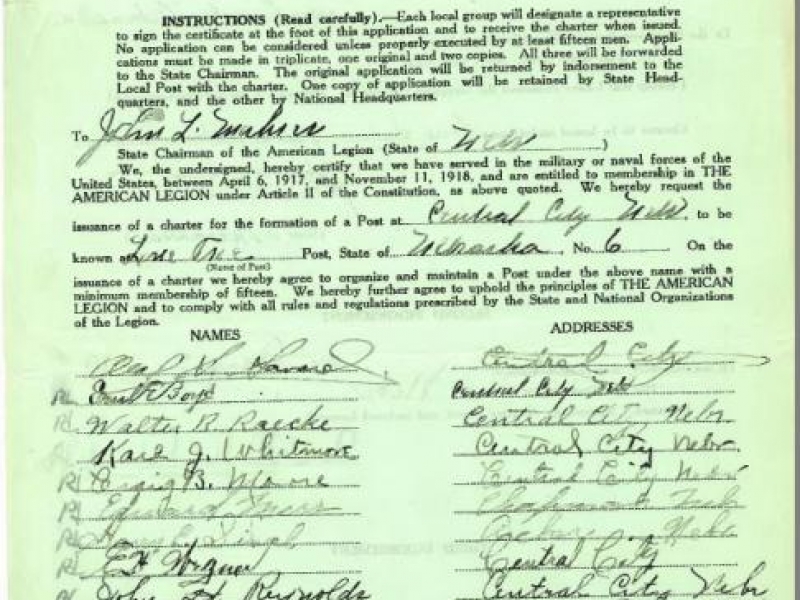 INSTRUCTIONS (Read carefully).—Each local group will designate a representative
to sign the certificate at the foot of this application and to receive the charter when issued.
No application can be considered unless properly executed by at least fifteen men. Appli-
cations must be made in triplicate, one original and two copies. All three will be forwarded
to the State Chairman. The original application will be returned by indorsement to the
Local Post with the charter. One copy of application will be retained by State Head-
quarters, and the other by National Headquarters.
To John L.
State Chairman of the American Legion (State of Neb )
We, the undersigned, hereby certify that we have served in the military or naval forces of the
United States, between April 6, 1917, and November 11, 1918, and are entitled to membership in THE
AMERICAN LEGION under Article II of the Constitution, as above quoted. We hereby request the
issuance of a charter for the formation of a Post at Central City Neb. to be
known as Lone Tree Post, State of Nebraska, No. 6 On the
(Name of Post)
issuance of a charter we hereby agree to organize and maintain a Post under the above name with a
minimum membership of fifteen. We hereby further agree to uphold the principles of THE AMERICAN
LEGION and to comply with all rules and regulations prescribed by the State and National Organizations
of the Legion.
NAMES ADDRESSES
Central City
Boyd Central City Neb
Walter R. Raecke Central City, Nebr
Karl J. Whitmore Central City Nebr.
Craig B. Moore Central City Nebr
Edward
Wegner Central City
John H. Reynolds Central City Nebr